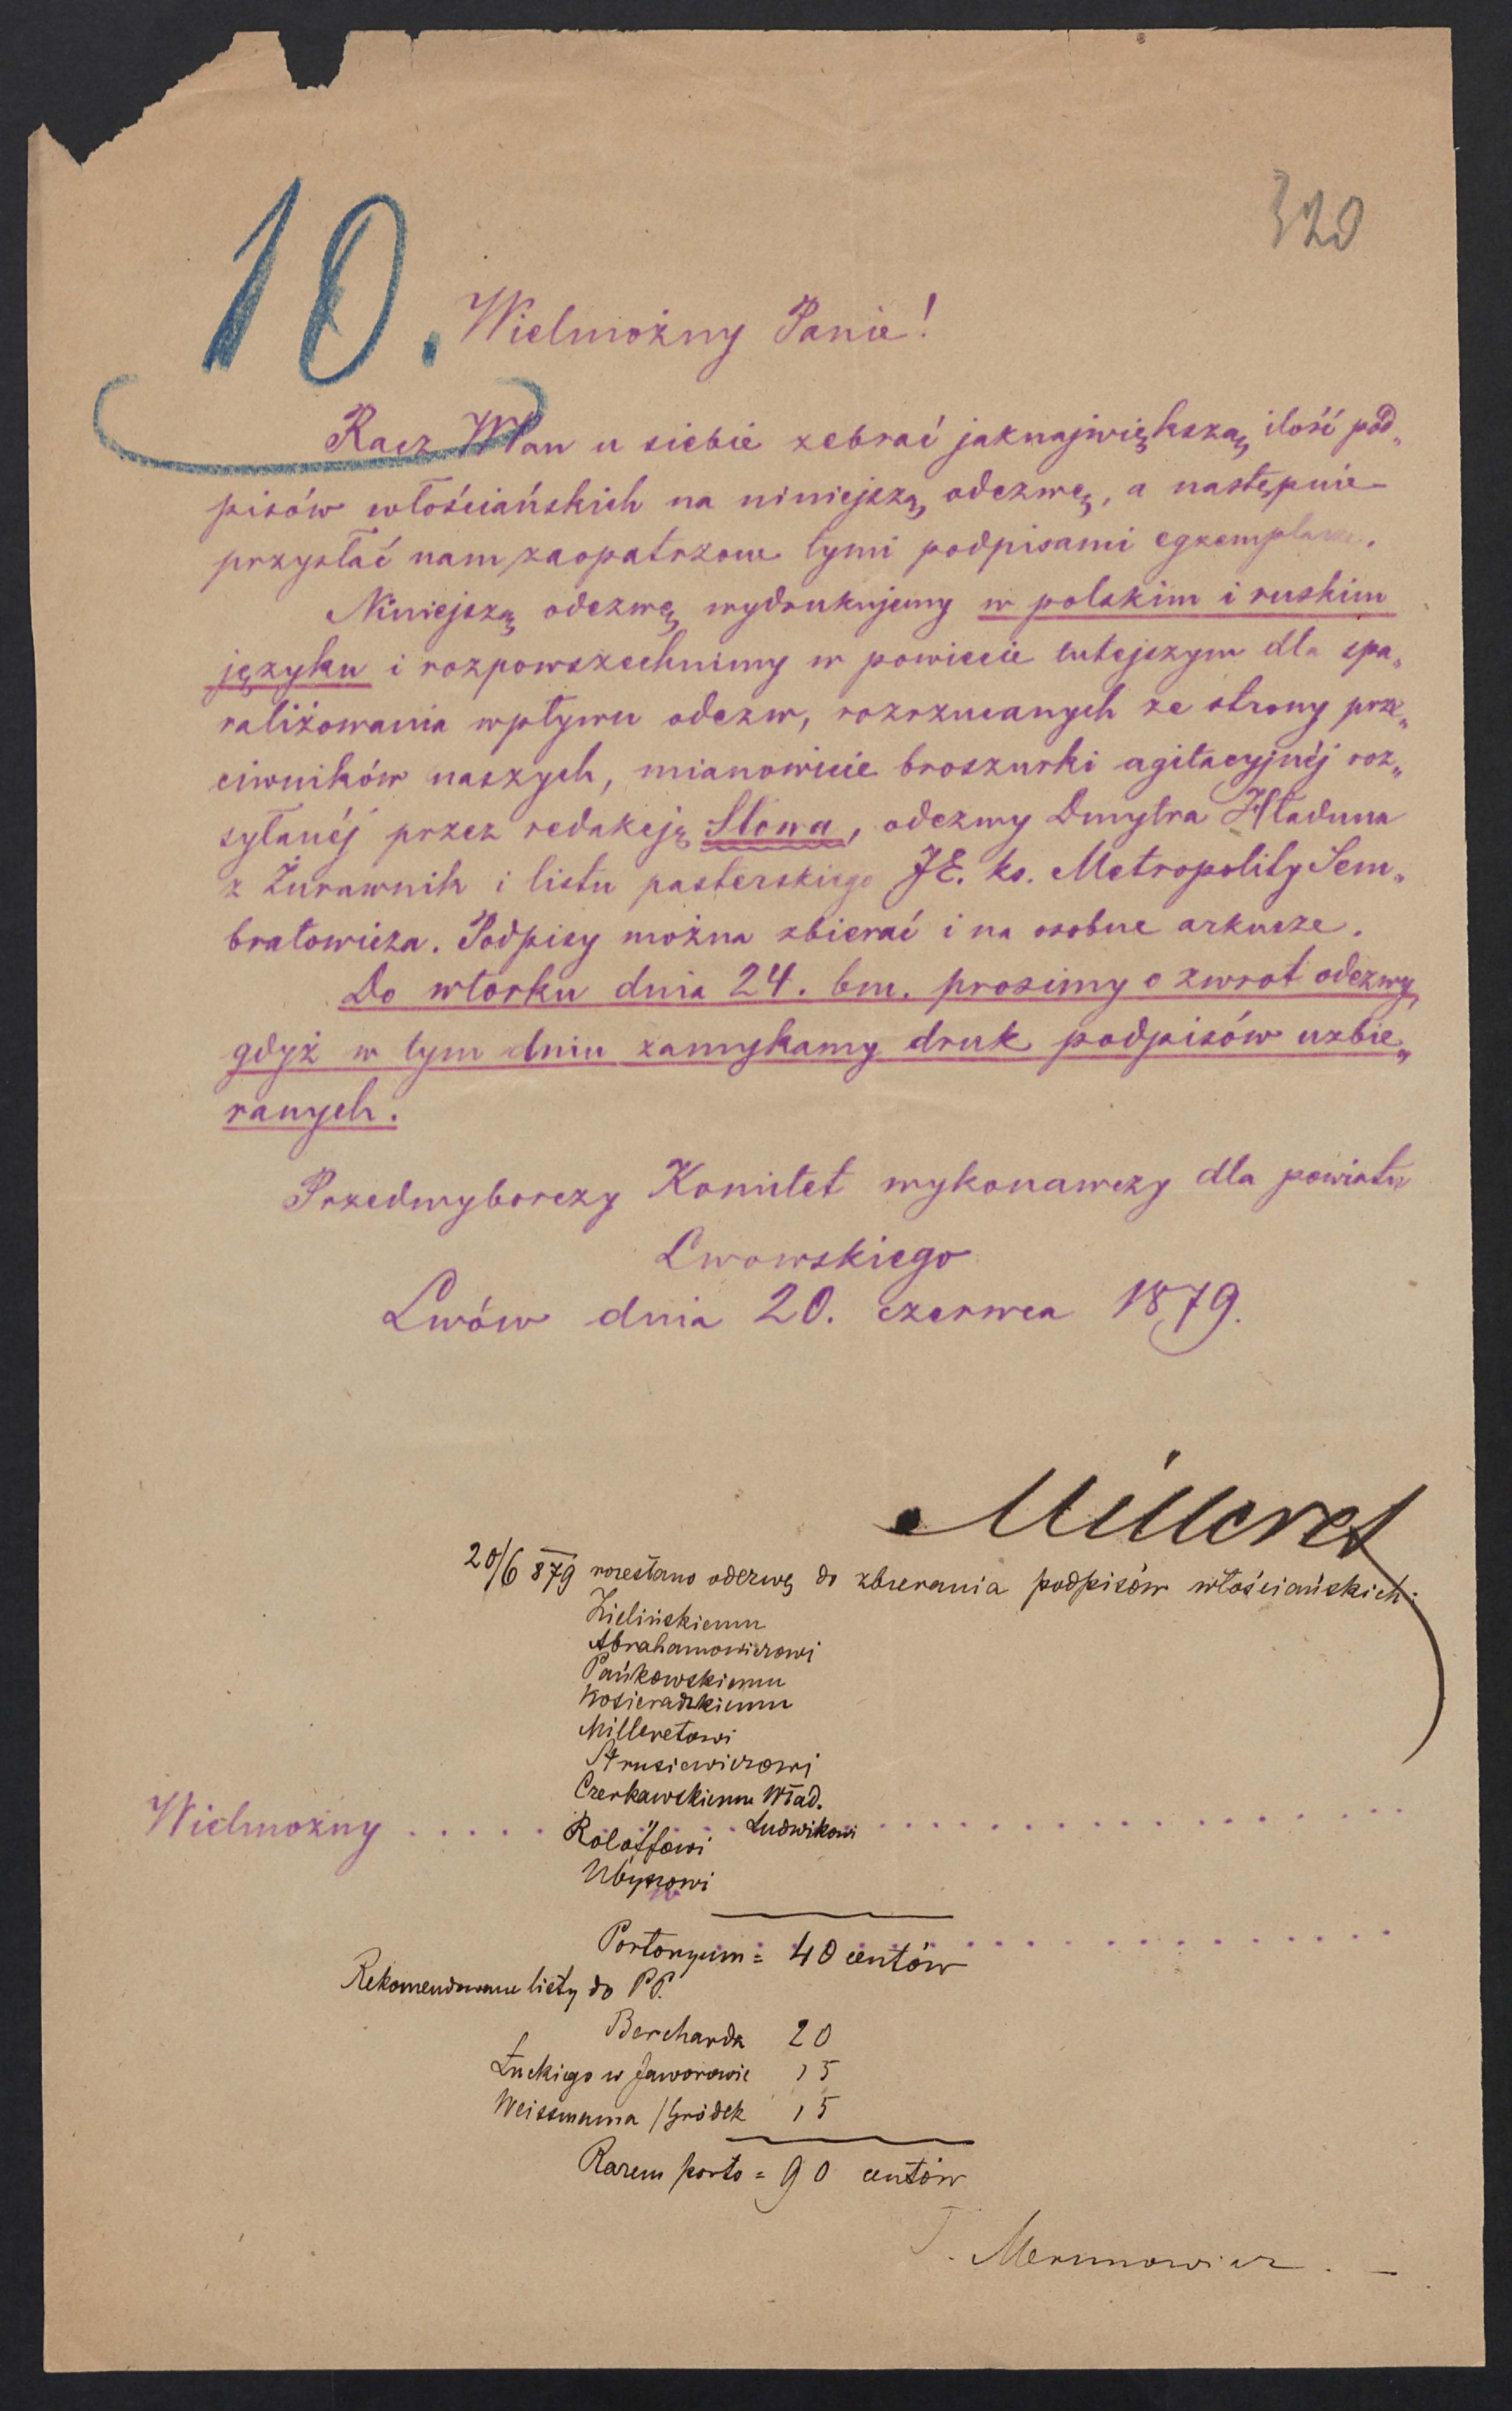 320
10.
Wielmożny Panie!
Racz WPan u siebie zebrać jaknajwiększą ilość pod„
pisów włościańskich na niniejszą odezwę, a następnie
przysłać nam zaopatrzone tymi podpisami egzemplarze.
Niniejszą odezwę wydrukujemy w polskim i ruskim
języku i rozpowszechnimy w powiecie tutejszym dla spa„
raliżowania wpływu odezw, rozrzucanych ze strony prze„
ciwników naszych, mianowicie broszurki agitacyjnéj roz„
syłanéj przez redakcję Słowa, odezwy Dmytra Hładuna
z Żurawnik i listu pasterskiego JE. ks. Metropolity Sem„
bratowicza. Podpisy można zbierać i na osobne arkusze.
Do wtorku dnia 24. bm. prosimy o zwrot odezwy,
gdyż w tym dniu zamykamy druk podpisów uzbie„
ranych.
Przedwyborczy Komitet wykonawczy dla powiatu
Lwowskiego
Lwów dnia 20. czerwca 1879.
Milleret
20/6 879 rozesłano odezwę do zbierania podpisów włościańskich:
Zielińskiemu
Abrahamowiczowi
Pańkowskiemu
Kosieradzkiemu
Milleretowi
Strusiewiczowi
Czerkawskiemu Wład.
" Ludwikowi
Wielmożny
Roloffowi
Ubyszowi
Portoryum = 40 centów
Rekomendowane listy do PP.
Bercharda 20
Łuckiego w Jaworowie 15
Weissmana / Gródek 15
Razem porto = 90 centów
T. Merunowicz. —